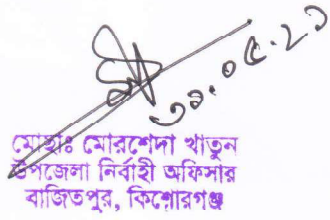 ৩০.০৫.২১
মোছাঃ মোরশেদা খাতুন
উপজেলা নির্বাহী অফিসার
বাজিতপুর, কিশোরগঞ্জ